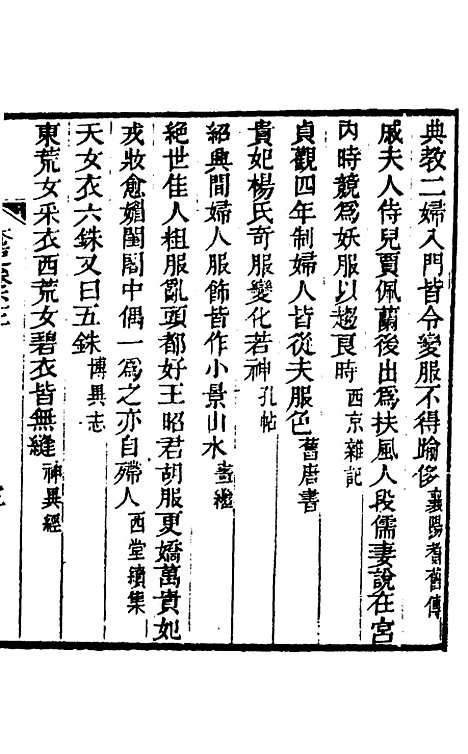 典教二婦入門皆令變服不得踰侈襄陽耆舊傳
戚夫人侍兒賈佩蘭後出爲扶風人段儒妻說在宮
內時競爲妖服以趨良時西京雜記
貞觀四年制婦人皆從夫服色舊唐書
貴妃楊氏奇服變化若神孔帖
紹興間婦人服飾皆作小景山水畫繼
絕世佳人粗服亂頭都好王昭君胡服更嬌萬貴妃
戎妝愈媚閨閣中偶一爲之亦自殢人西堂續集
天女衣六銖又曰五銖博異志
東荒女采衣西荒女碧衣皆無縫神異經